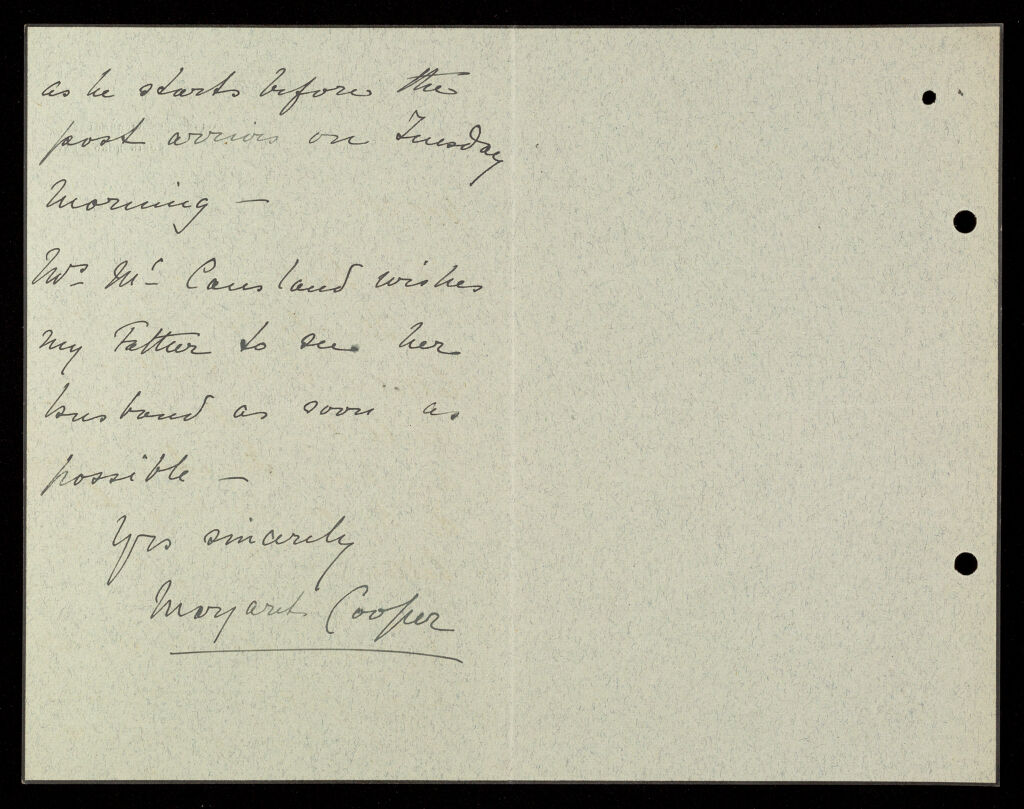 as he starts before the
post arrives on Tuesday
Morning –
Mrs. Mc Causland wishes
my Father to see her
husband as soon as
possible –
Yrs sincerely
Margaret Cooper